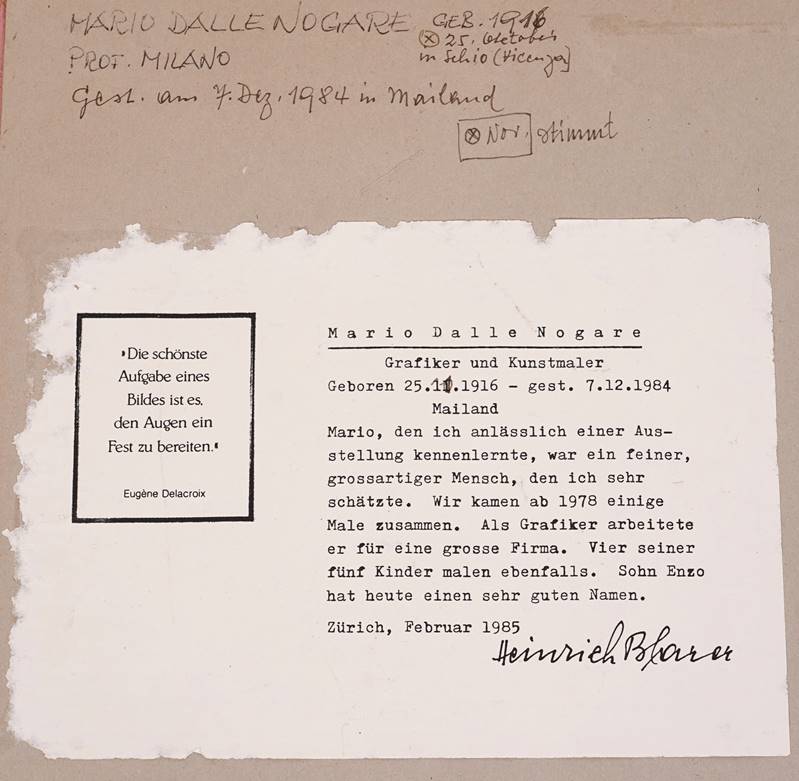 MARIO DALLE NOGARE GEB. 1916
⊗ 25. Oktober
PROF. MILANO in Schio (Vicenza)
Gest. am 7. Dez. 1984 in Mailand
⊗ Nov. stimmt
"Die schönste
Aufgabe eines
Bildes ist es,
den Augen ein
Fest zu bereiten."
Eugène Delacroix
Mario Dalle Nogare
Grafiker und Kunstmaler
Geboren 25.11.1916 - gest. 7.12.1984
Mailand
Mario, den ich anlässlich einer Aus-
stellung kennenlernte, war ein feiner,
grossartiger Mensch, den ich sehr
schätzte. Wir kamen ab 1978 einige
Male zusammen. Als Grafiker arbeitete
er für eine grosse Firma. Vier seiner
fünf Kinder malen ebenfalls. Sohn Enzo
hat heute einen sehr guten Namen.
Zürich, Februar 1985
Heinrich Blarer